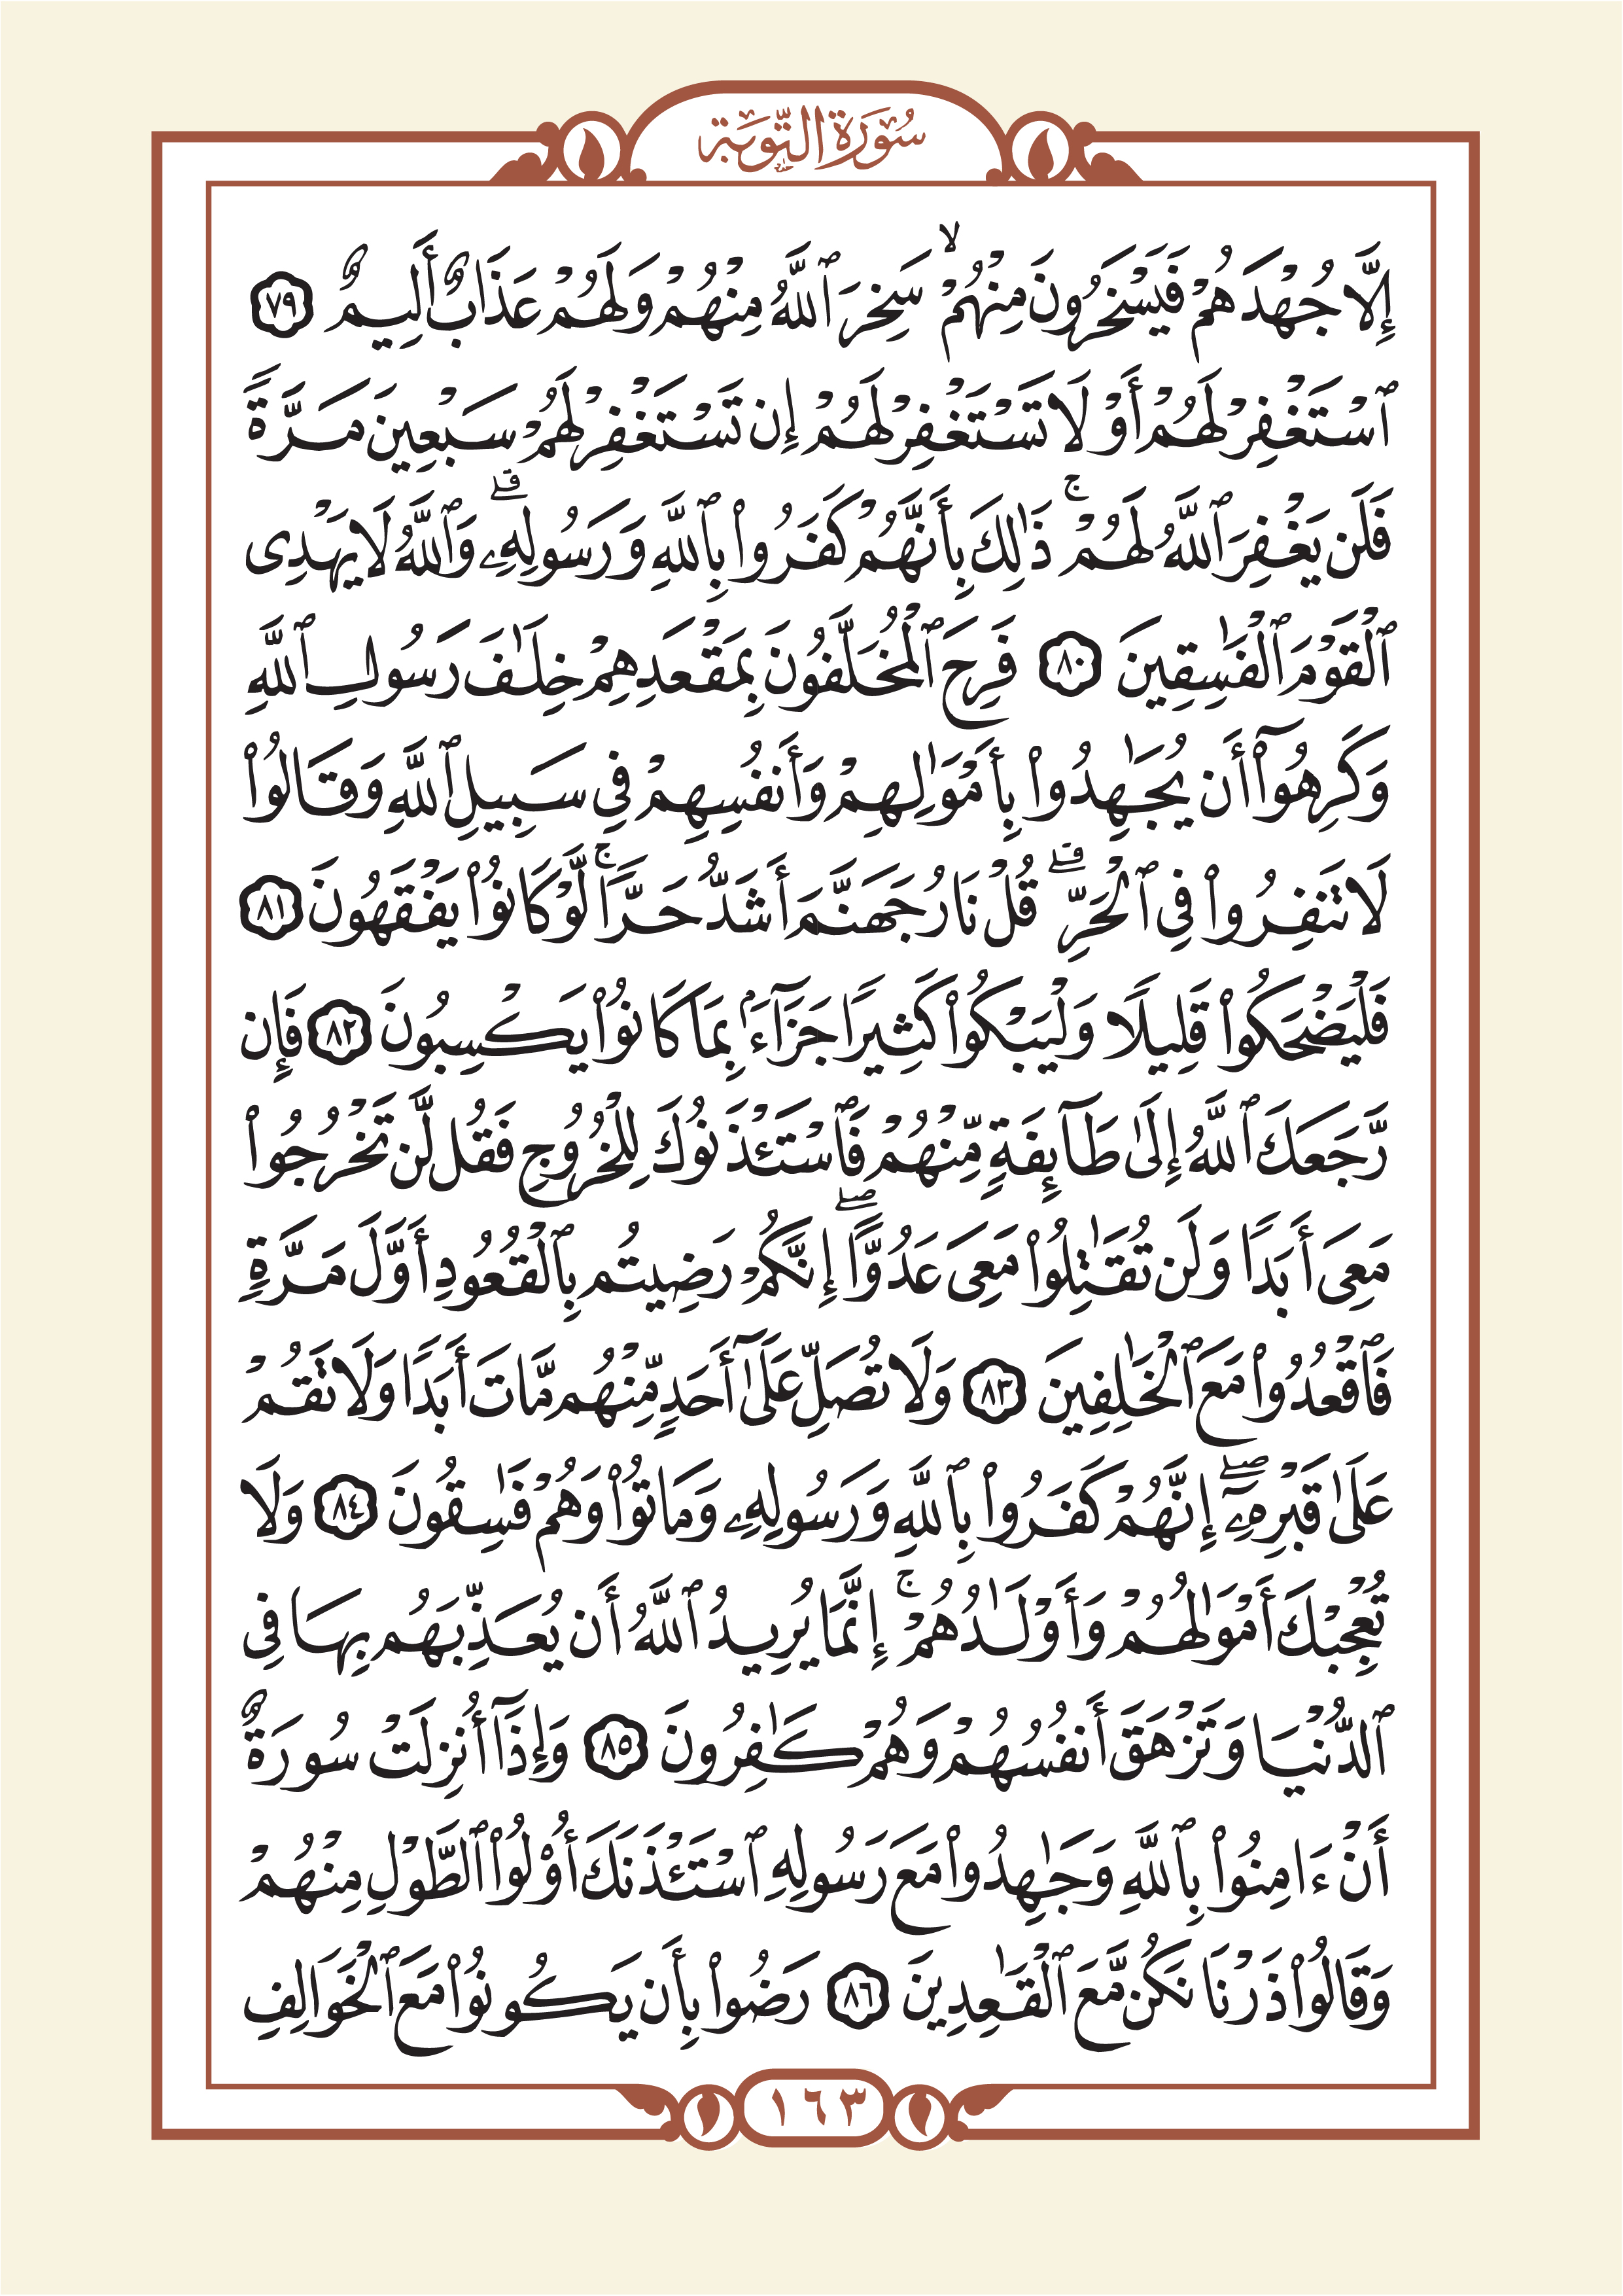 سُورَةُ التَّوْبَة
إِلَّا جُهْدَهُمْ فَيَسْخَرُونَ مِنْهُمْ ۙ سَخِرَ ٱللَّهُ مِنْهُمْ وَلَهُمْ عَذَابٌ أَلِيمٌ ٧٩
ٱسْتَغْفِرْ لَهُمْ أَوْ لَا تَسْتَغْفِرْ لَهُمْ إِن تَسْتَغْفِرْ لَهُمْ سَبْعِينَ مَرَّةً
فَلَن يَغْفِرَ ٱللَّهُ لَهُمْ ۚ ذَٰلِكَ بِأَنَّهُمْ كَفَرُوا۟ بِٱللَّهِ وَرَسُولِهِۦ ۗ وَٱللَّهُ لَا يَهْدِى
ٱلْقَوْمَ ٱلْفَـٰسِقِينَ ٨٠ فَرِحَ ٱلْمُخَلَّفُونَ بِمَقْعَدِهِمْ خِلَـٰفَ رَسُولِ ٱللَّهِ
وَكَرِهُوٓا۟ أَن يُجَـٰهِدُوا۟ بِأَمْوَٰلِهِمْ وَأَنفُسِهِمْ فِى سَبِيلِ ٱللَّهِ وَقَالُوا۟
لَا تَنفِرُوا۟ فِى ٱلْحَرِّ ۗ قُلْ نَارُ جَهَنَّمَ أَشَدُّ حَرًّا ۚ لَّوْ كَانُوا۟ يَفْقَهُونَ ٨١
فَلْيَضْحَكُوا۟ قَلِيلًا وَلْيَبْكُوا۟ كَثِيرًا جَزَآءًۢ بِمَا كَانُوا۟ يَكْسِبُونَ ٨٢ فَإِن
رَّجَعَكَ ٱللَّهُ إِلَىٰ طَآئِفَةٍ مِّنْهُمْ فَٱسْتَـْٔذَنُوكَ لِلْخُرُوجِ فَقُل لَّن تَخْرُجُوا۟
مَعِىَ أَبَدًا وَلَن تُقَـٰتِلُوا۟ مَعِىَ عَدُوًّا ۖ إِنَّكُمْ رَضِيتُم بِٱلْقُعُودِ أَوَّلَ مَرَّةٍ
فَٱقْعُدُوا۟ مَعَ ٱلْخَـٰلِفِينَ ٨٣ وَلَا تُصَلِّ عَلَىٰٓ أَحَدٍ مِّنْهُم مَّاتَ أَبَدًا وَلَا تَقُمْ
عَلَىٰ قَبْرِهِۦٓ ۖ إِنَّهُمْ كَفَرُوا۟ بِٱللَّهِ وَرَسُولِهِۦ وَمَاتُوا۟ وَهُمْ فَـٰسِقُونَ ٨٤ وَلَا
تُعْجِبْكَ أَمْوَٰلُهُمْ وَأَوْلَـٰدُهُمْ ۚ إِنَّمَا يُرِيدُ ٱللَّهُ أَن يُعَذِّبَهُم بِهَا فِى
ٱلدُّنْيَا وَتَزْهَقَ أَنفُسُهُمْ وَهُمْ كَـٰفِرُونَ ٨٥ وَإِذَآ أُنزِلَتْ سُورَةٌ
أَنْ ءَامِنُوا۟ بِٱللَّهِ وَجَـٰهِدُوا۟ مَعَ رَسُولِهِ ٱسْتَـْٔذَنَكَ أُو۟لُوا۟ ٱلطَّوْلِ مِنْهُمْ
وَقَالُوا۟ ذَرْنَا نَكُن مَّعَ ٱلْقَـٰعِدِينَ ٨٦ رَضُوا۟ بِأَن يَكُونُوا۟ مَعَ ٱلْخَوَالِفِ
١٦٣